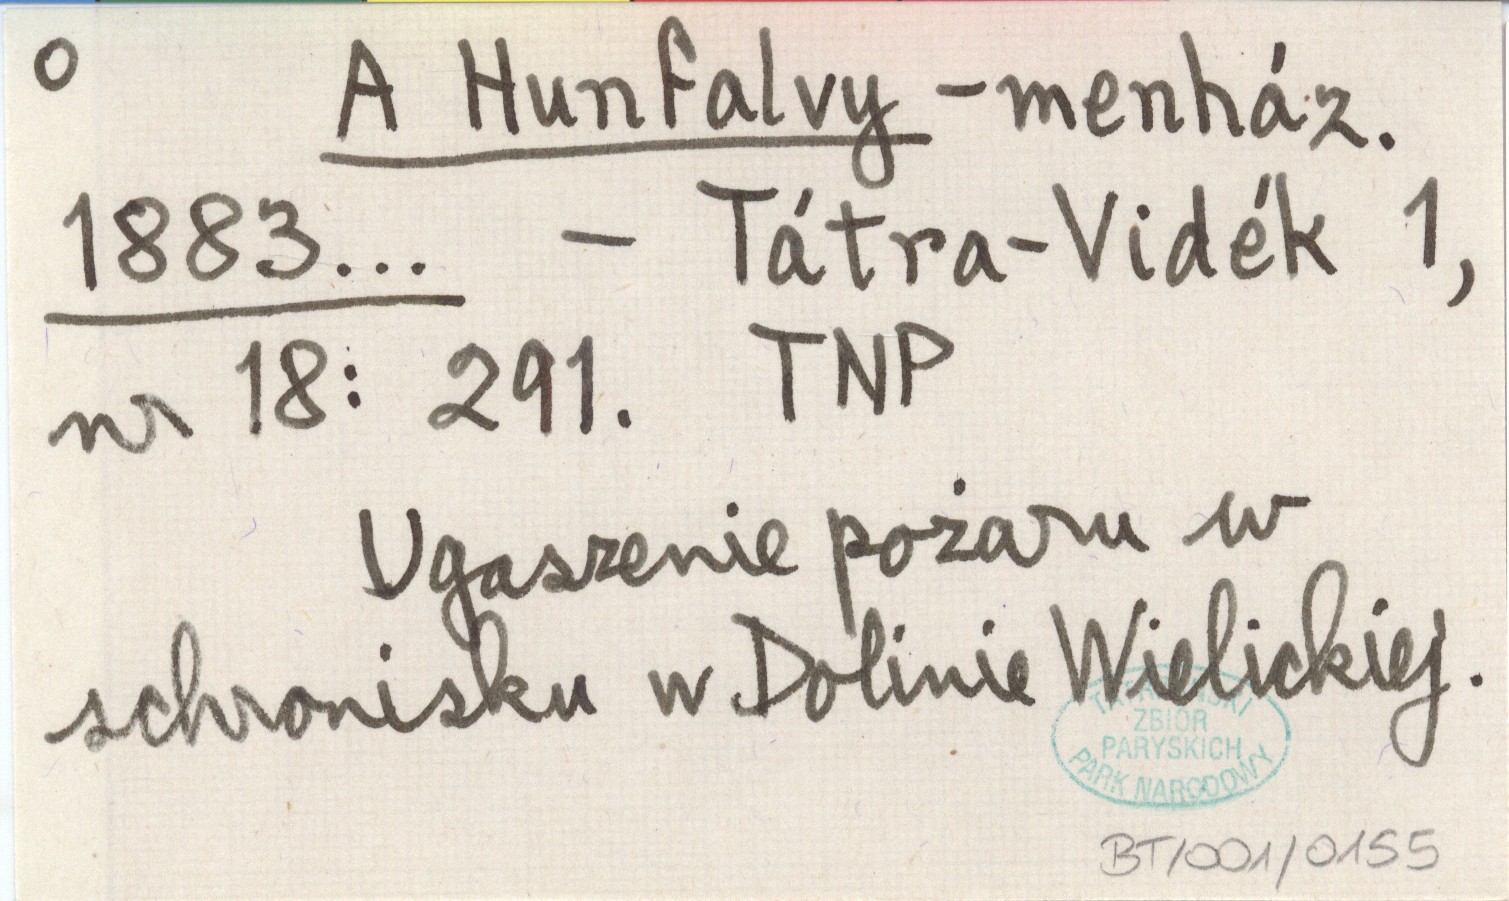 o A Hunfalvy-menház.
1883... – Tátra-Vidék 1,
nr 18: 291. TNP
Ugaszenie pożaru w
schronisku w Dolinie Wielickiej.
TATRZAŃSKI
ZBIÓR
PARYSKICH
PARK NARODOWY
BT/001/0155